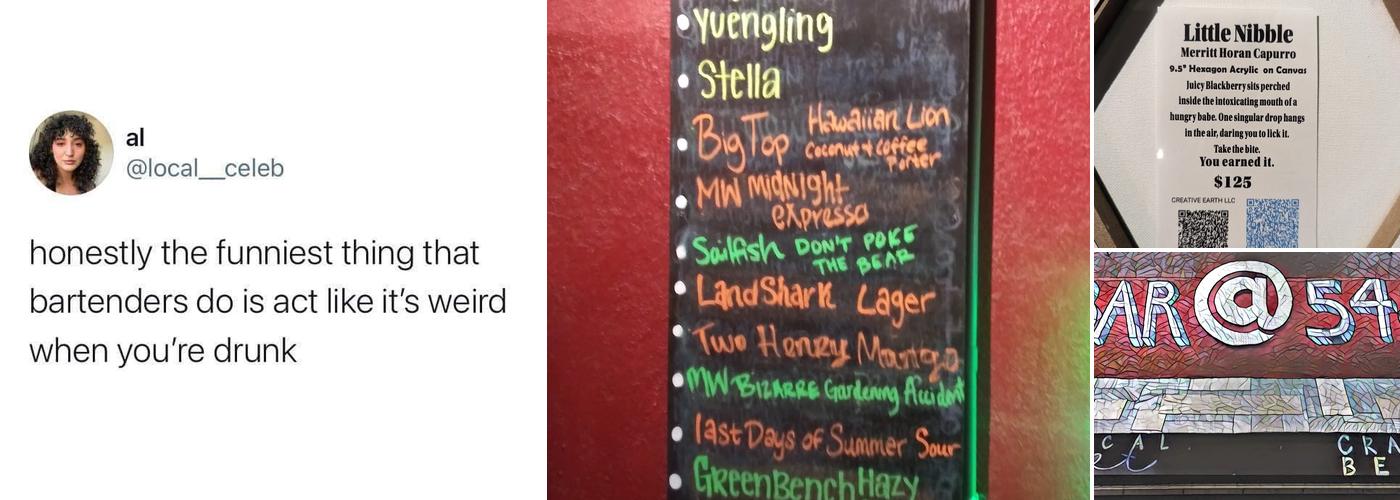 al
@local__celeb
honestly the funniest thing that
bartenders do is act like it's weird
when you're drunk
Yuengling
Stella
Big Top Hawaiian Lion
Coconut & Coffee
Porter
MW Midnight
expresso
Sailfish DON'T POKE
THE BEAR
LandShark Lager
Two Henry Mango
MW BIZARRE Gardening Accident
last Days of Summer Sour
GreenBench Hazy
Little Nibble
Merritt Horan Capurro
9.5" Hexagon Acrylic on Canvas
Juicy Blackberry sits perched
inside the intoxicating mouth of a
hungry babe. One singular drop hangs
in the air, daring you to lick it.
Take the bite.
You earned it.
$125
CREATIVE EARTH LLC
AR @ 54
CAL
CRA
BE